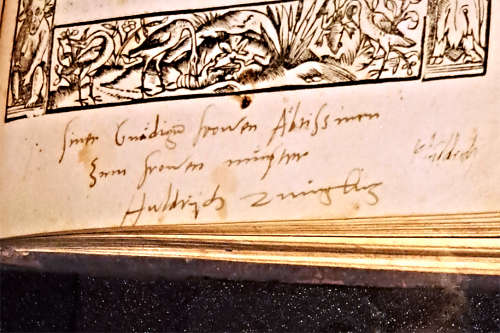 siner Gnädigen frowen Äbtissinen
Zum frowen münster
Huldrych Zuinglius